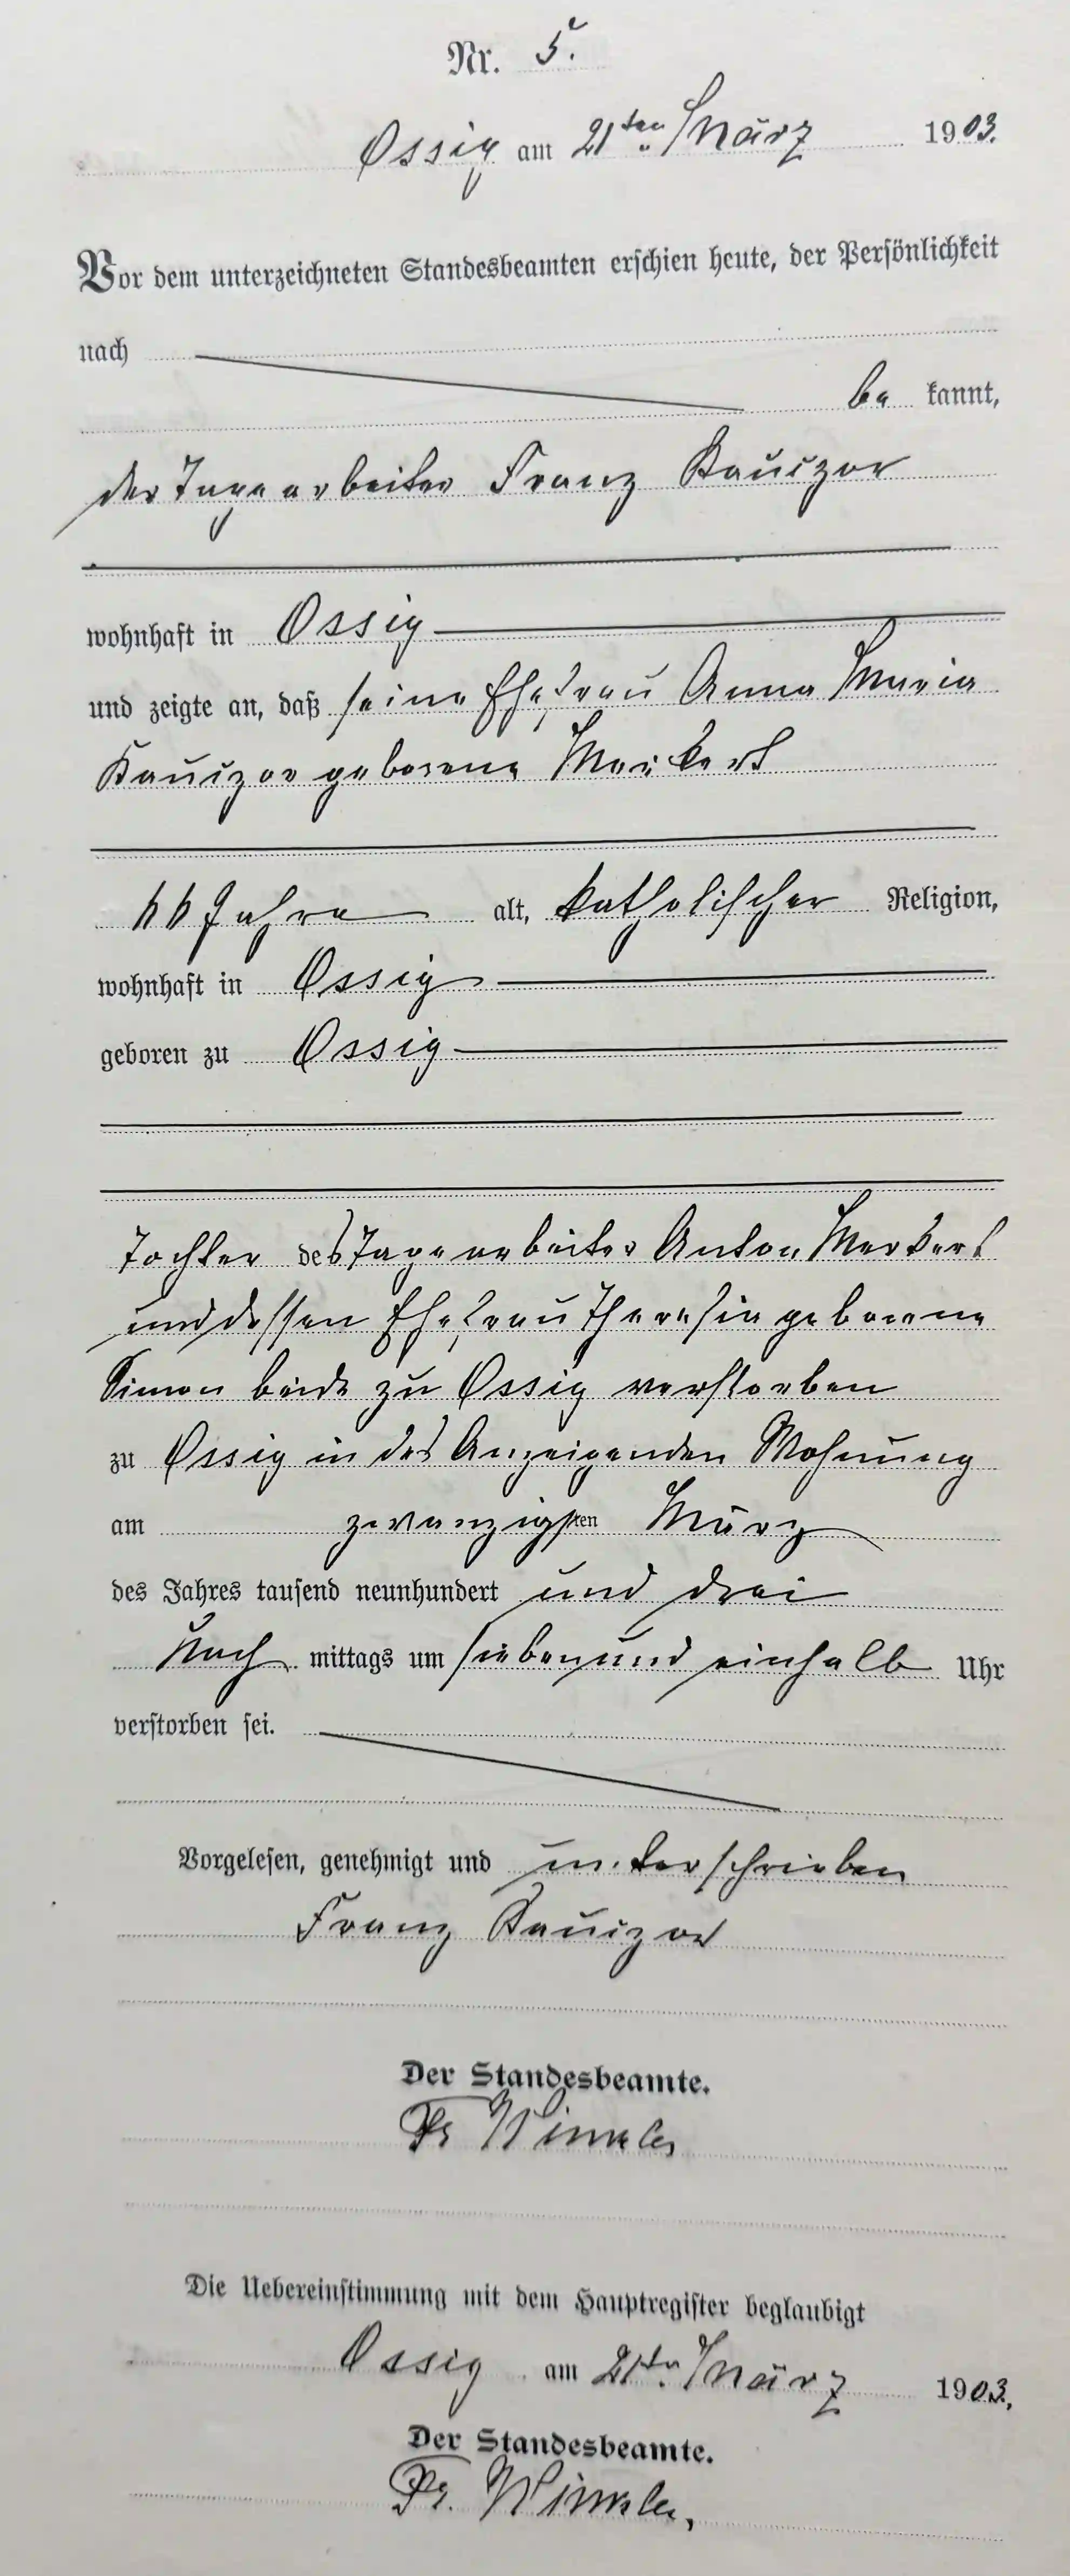 Nr. 5.
Ossig am 21ten März 1903.
Vor dem unterzeichneten Standesbeamten erschien heute, der Persönlichkeit
nach
be kannt,
der Tagearbeiter Franz Kauczor
wohnhaft in Ossig
und zeigte an, daß seine Ehefrau Anna Maria
Kauczor geborene Merkert
Jahre alt, katholischer Religion,
wohnhaft in Ossig
geboren zu Ossig
Tochter des Tagearbeiter Anton Merkert
und dessen Ehefrau Theresia geborene
Simon beide zu Ossig verstorben
zu Ossig in des Anzeigenden Wohnung
am zwanzigsten März
des Jahres tausend neunhundert und drei
Nach mittags um sieben und einhalb Uhr
verstorben sei.
Vorgelesen, genehmigt und unterschrieben
Franz Kauczor
Der Standesbeamte.
Fr. Winkler
Die Uebereinstimmung mit dem Hauptregister beglaubigt
Ossig am 21ten März 1903.
Der Standesbeamte.
Fr. Winkler.